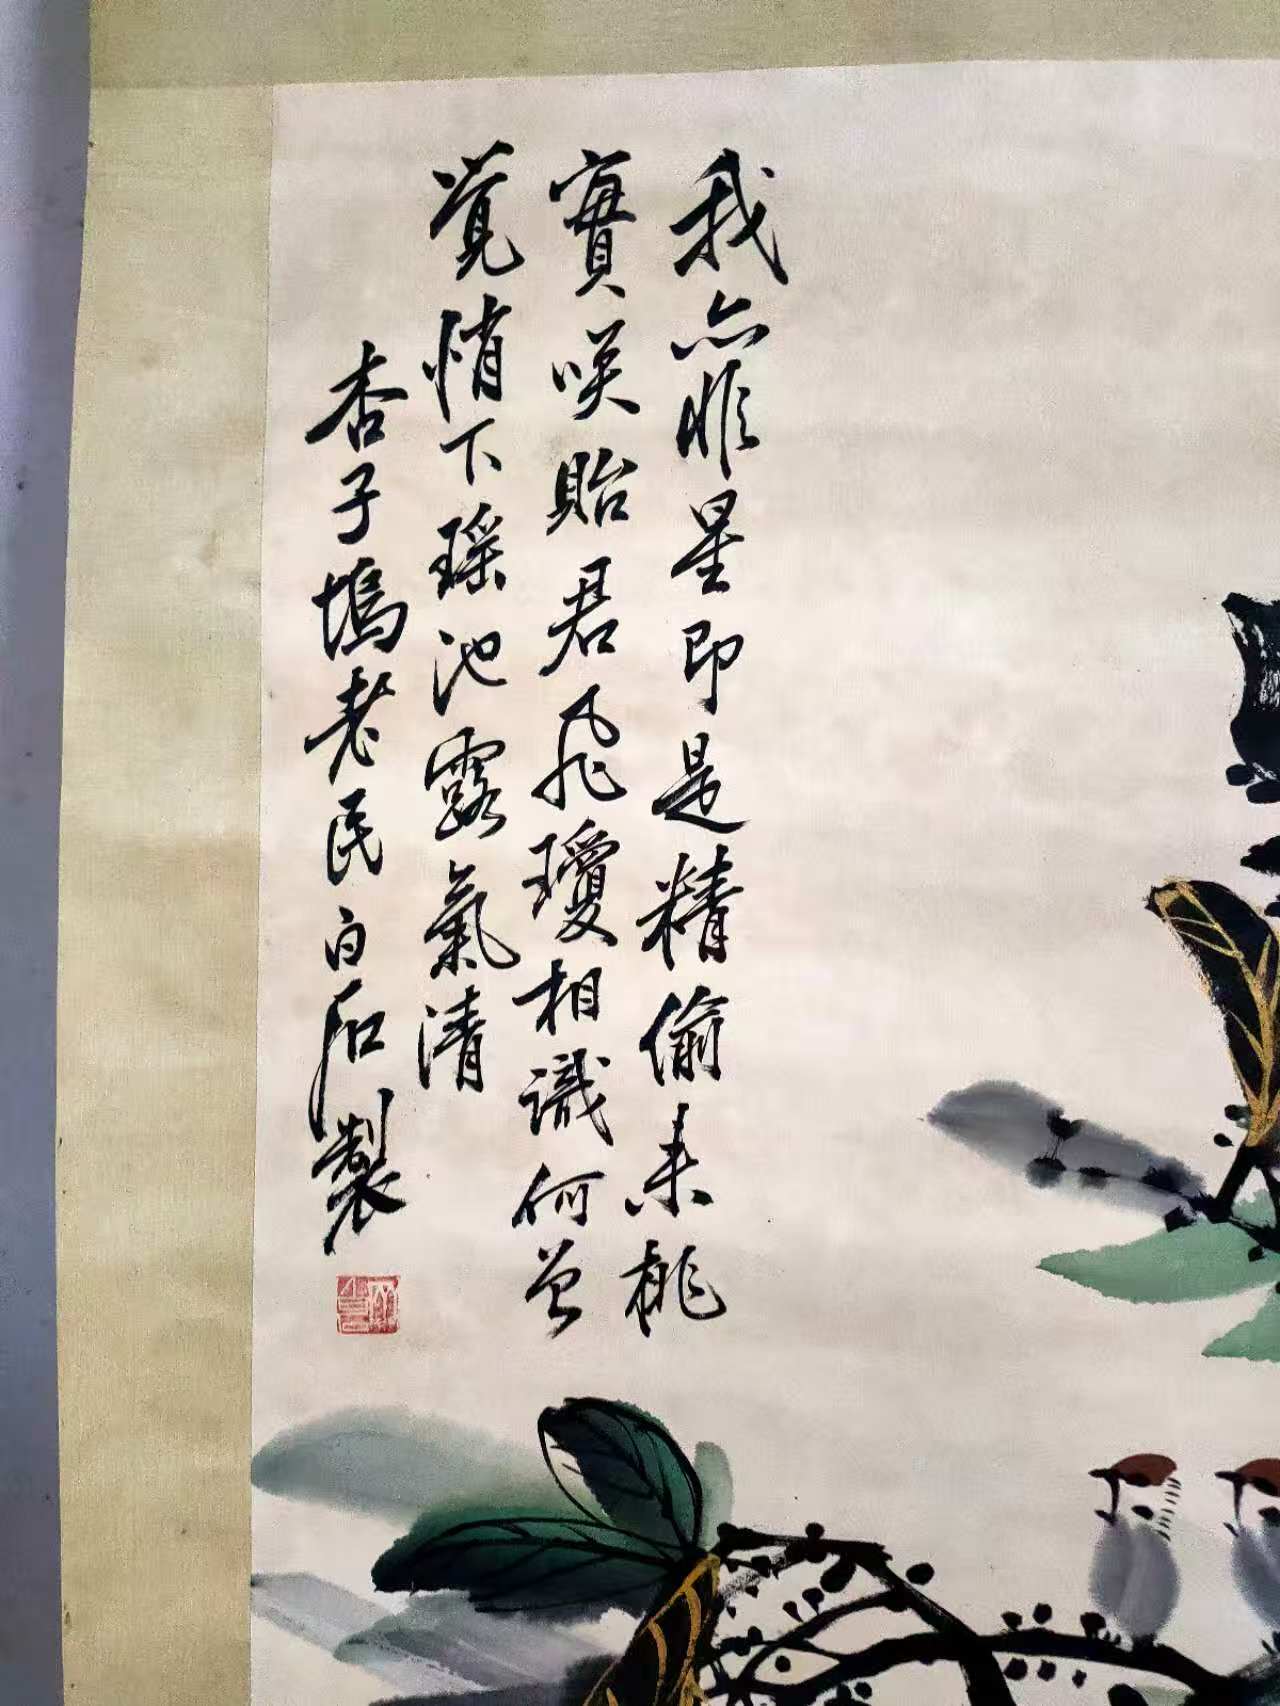 我亦非星即是精偷來桃
實笑貽君飛瓊相識何曾
覺悄下瑤池露氣清
杏子塢老民白石製